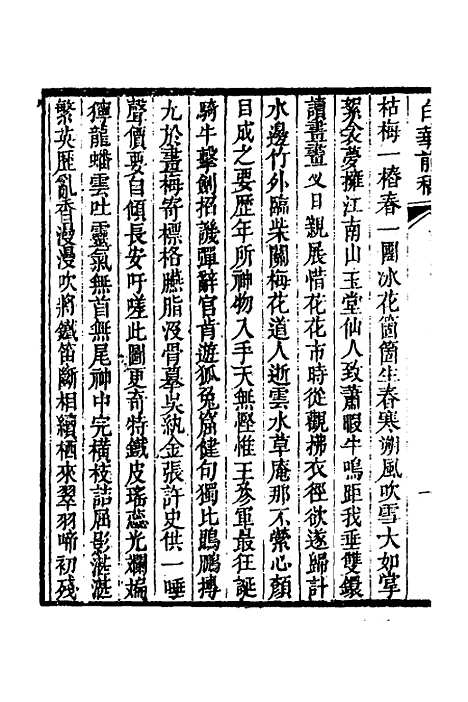 白華前稿
一
枯梅一樁春一團冰花箇箇生春寒溯風吹雪大如掌
絮衾夢擁江南山玉堂仙人致蕭暇牛嗚距我垂雙鐶
讀畫畫叉日親展惜花花市時從觀拂衣徑欲遂歸計
水邊竹外臨柴關梅花道人逝雲水草庵那不縈心顏
目成之要歷年所神物入手天無慳惟王參軍最狂誕
騎牛擊劍招譏彈辭官首遊狐兔窟健句獨比鵾鵬摶
尤於畫梅寄標格臙脂沒骨摹吳紈金張許史供一唾
聲價要自傾長安吁嗟此圖更奇特鐵皮瑤蕊光斕斒
獰龍蟠雲吐靈氣無首無尾神中完橫枝詰屈影湛湛
繁英歷亂香漫漫吹將鐵笛斷相續栖來翠羽啼初殘